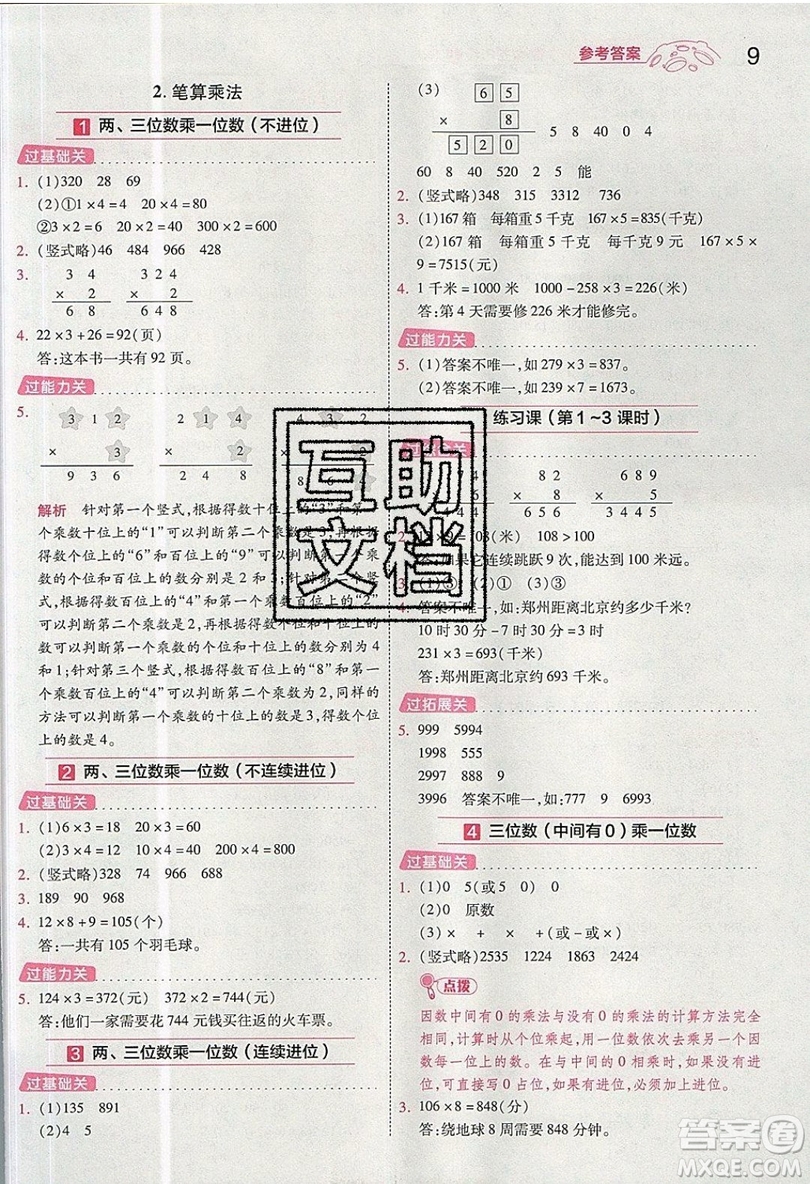 参考答案 9
2. 笔算乘法
1 两、三位数乘一位数(不进位)
过基础关
1. (1)320 28 69
(2)①1×4=4 20×4=80
②3×2=6 300×2=600
2. (竖式略)46 484 966 428
3. 3 4 3 2 4
× 2 × 2
6 8 6 4 8
4. 22×3+26=92(页)
答:这本书一共有 92 页。
过能力关
5. 3 1 2 2 1 4 4 3 2
× 3 ×
9 3 6 2 4 8 8 6
解析 针对第一个竖式,根据得数十位上的“3”和
个乘数十位上的“1”可以判断第二个乘数是3,再
个位上的“6”和百位上的“9”可以判断第一个
数的个位上的数和百位上的数分别是2和3;针对第二个竖
式,根据得数十位上的“4”和第一个乘数百位上的“2”
可以判断第二个乘数是 2,再根据得数个位和百位上
的数可以判断第一个乘数的个位和十位上的数分别是 4
和 1;针对第三个竖式,根据得数百位上的“8”和第一
个乘数百位上的“4”可以判断第二个乘数为 2,同样的
方法可以判断第一个乘数的十位上的数是 3,得数个位
上的数是 4。
2 两、三位数乘一位数(不连续进位)
过基础关
1. (1)6×3=18 20×3=60
(2)3×2=6 10×2=20 400×2=800
2. (竖式略)328 74 906 688
3. 189 90 968
4. 12×8+9=105(个)
答:一共有 105 个羽毛球。
过能力关
5. 124×3=372(元) 372×2=744(元)
答:他们一家需要花 744 元钱买往返的火车票。
3 两、三位数乘一位数(连续进位)
过基础关
1. (1)135 891
(2)4 5
(3) 6 5
× 8
5 2 0 5 8 40 0 4
60 8 40 520 2 5 能
2. (竖式略)348 315 3312 736
3. (1)167 箱 每箱重 5 千克 167×5=835(千克)
(2)167 箱 每箱重 5 千克 每千克 9 元 167×5×
9=7515(元)
4. 1 千米=1000 米 1000-258×3=226(米)
答:第 4 天需要修 226 米才能修完。
过能力关
5. (1)答案不唯一,如 279×3=837。
(2)答案不唯一,如 851×7=5957。
练习课(第 1~3 课时)
7 4 4 8 2 6 8 2
4 × 8 ×
6 5 6 3 4 1 0
×9=108(米) 108>100
如果它连续跳跃 9 次,能达到 100 米远。
3. (1)③ (2)① (3)③
4. 答案不唯一,如:郑州距离北京约多少千米?
10 时 30 分-7 时 30 分=3 时
231×3=693(千米)
答:郑州距离北京约 693 千米。
过拓展关
5. 999 5994
1998 555
2997 888 8
3996 答案不唯一,如:777 9 6993
4 三位数(中间有 0)乘一位数
过基础关
1. (1)0 5(或 5 0) 0
(2)0 原数
(3)× + + × ×
2. (竖式略)2535 1224 1863 2421
点拨
因数中间有 0 的乘法与没有 0 的乘法的计算方法完全
相同,计算时从个位乘起,用一位数依次去乘另一个因
数的每一位数。在与中间的 0 相乘时,如果没有进
位,可直接写 0 占位,如果有进位,必须加上进位。
3. 106×8=848(分)
答:绕地球 8 周需要 848 分钟。
互助
文档
答案圈
MXQE.COM